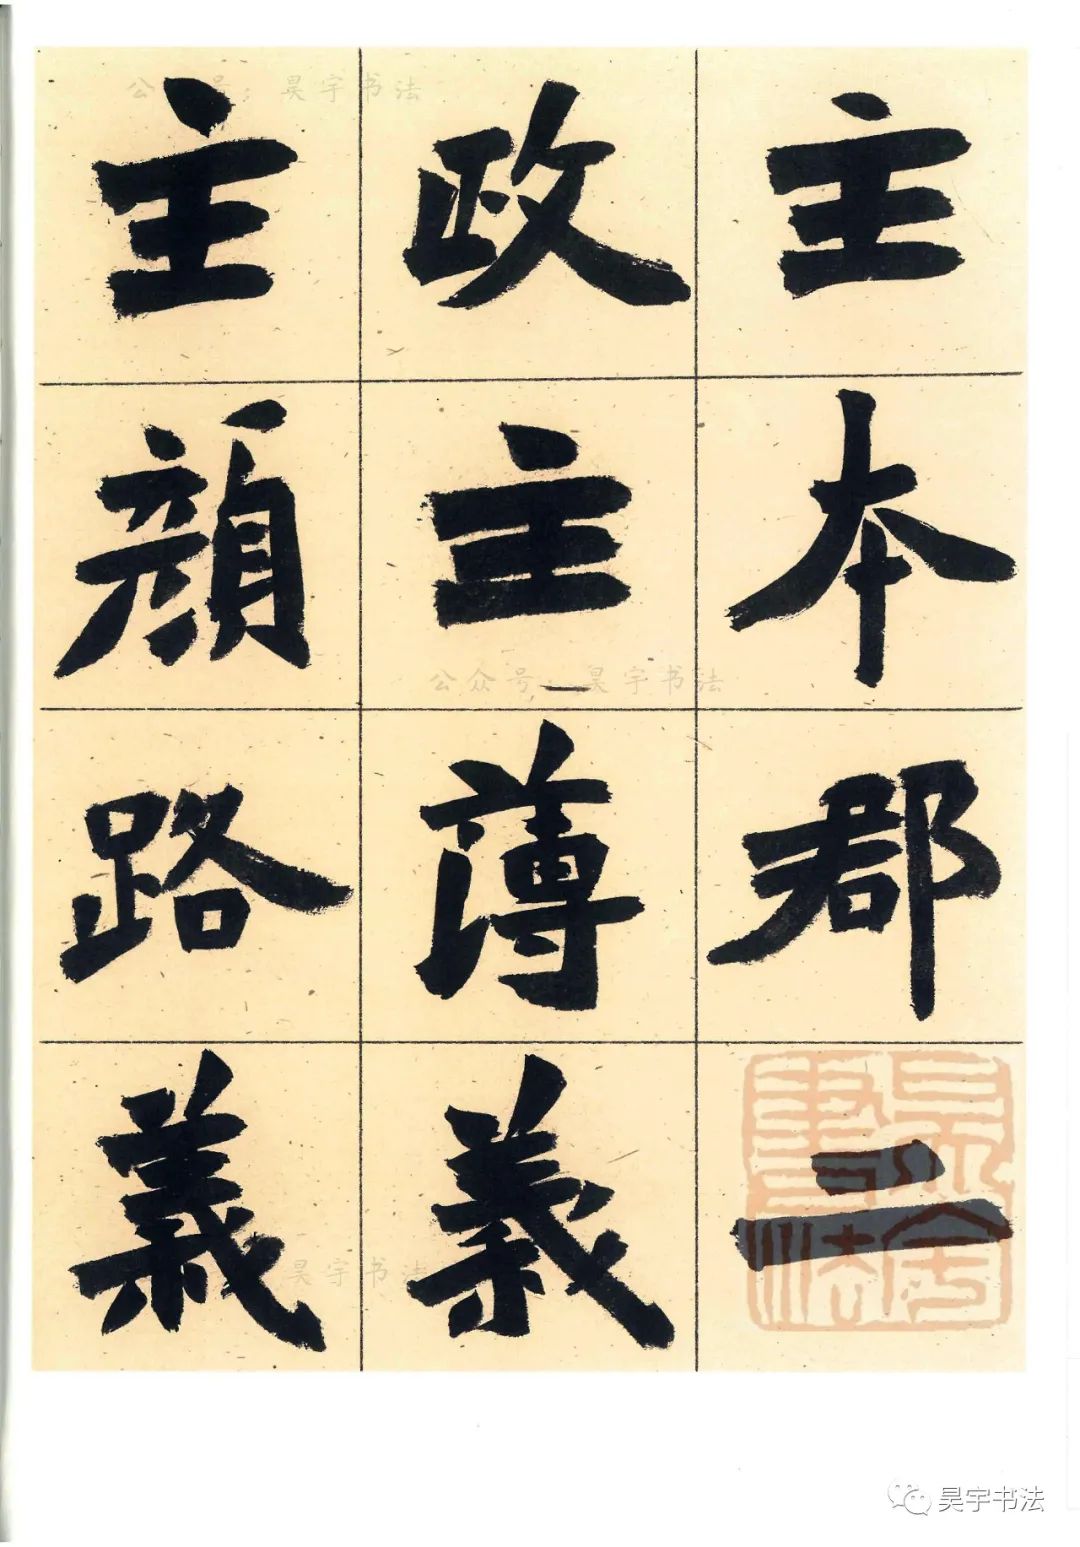 主本郡二
政主薄義
主顔路義
公众号：昊宇书法
公众号：昊宇书法
昊宇书法
昊宇書法
昊宇书法